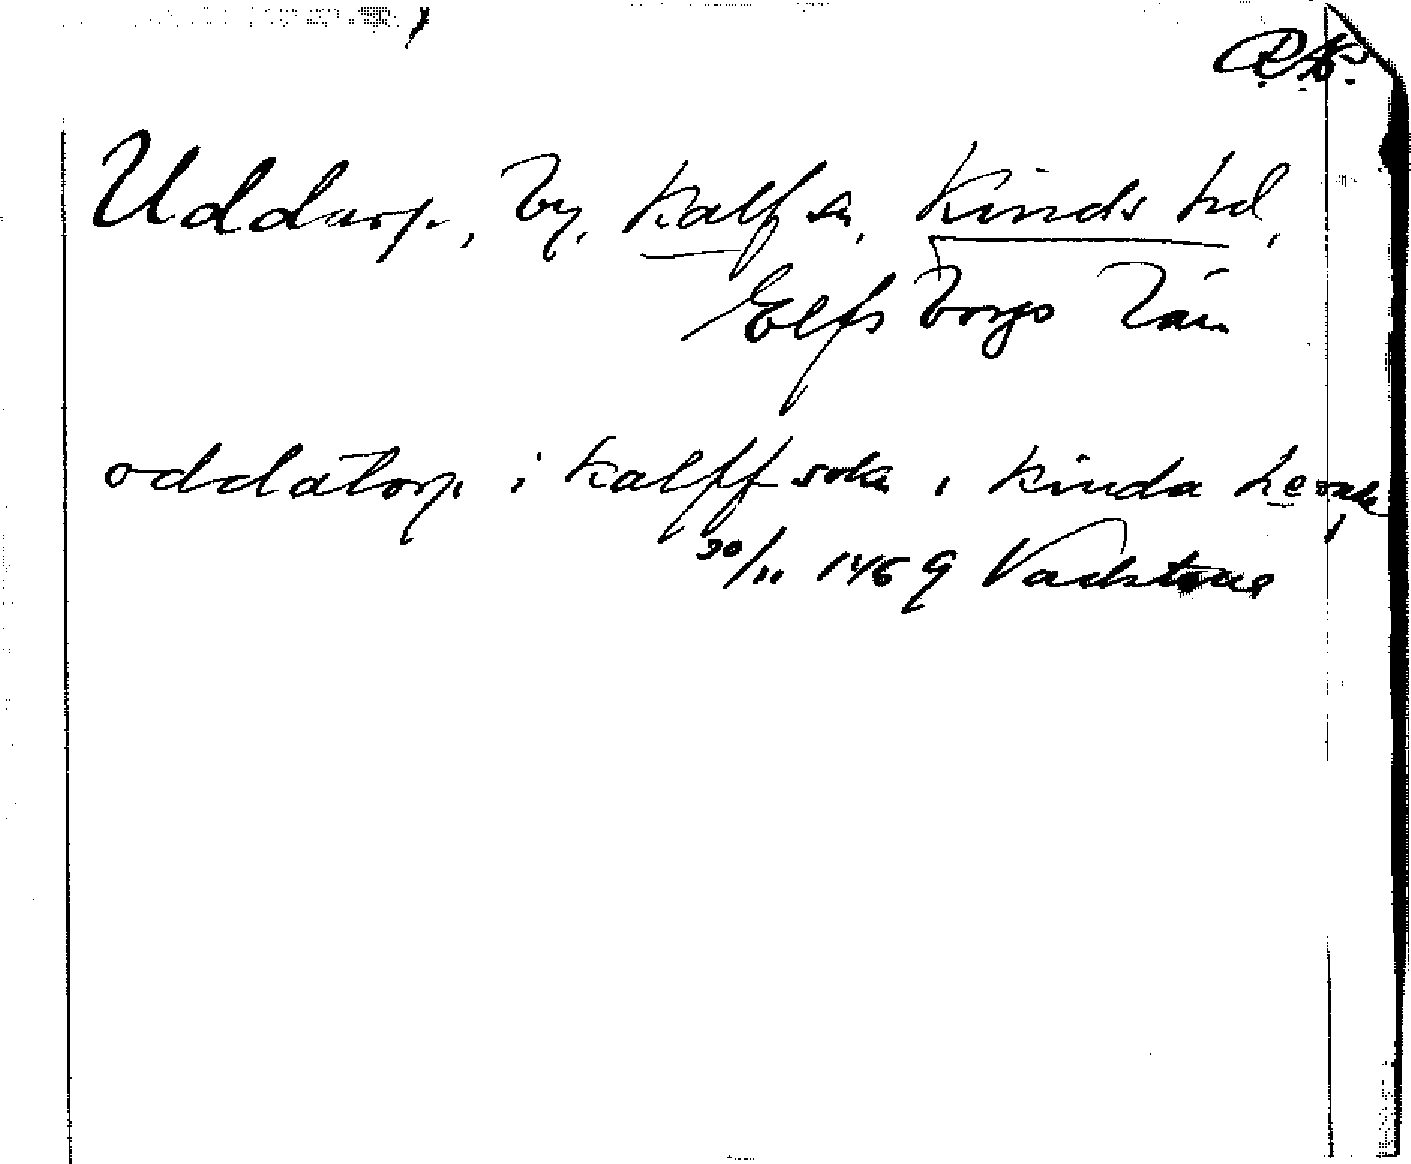 R.A.
Uddarp, by, Kalf sn, Kinds hd,
Elfsborgs län
oddatorp i kalff sokn i kinda herade
30/11 1469 Vadstena